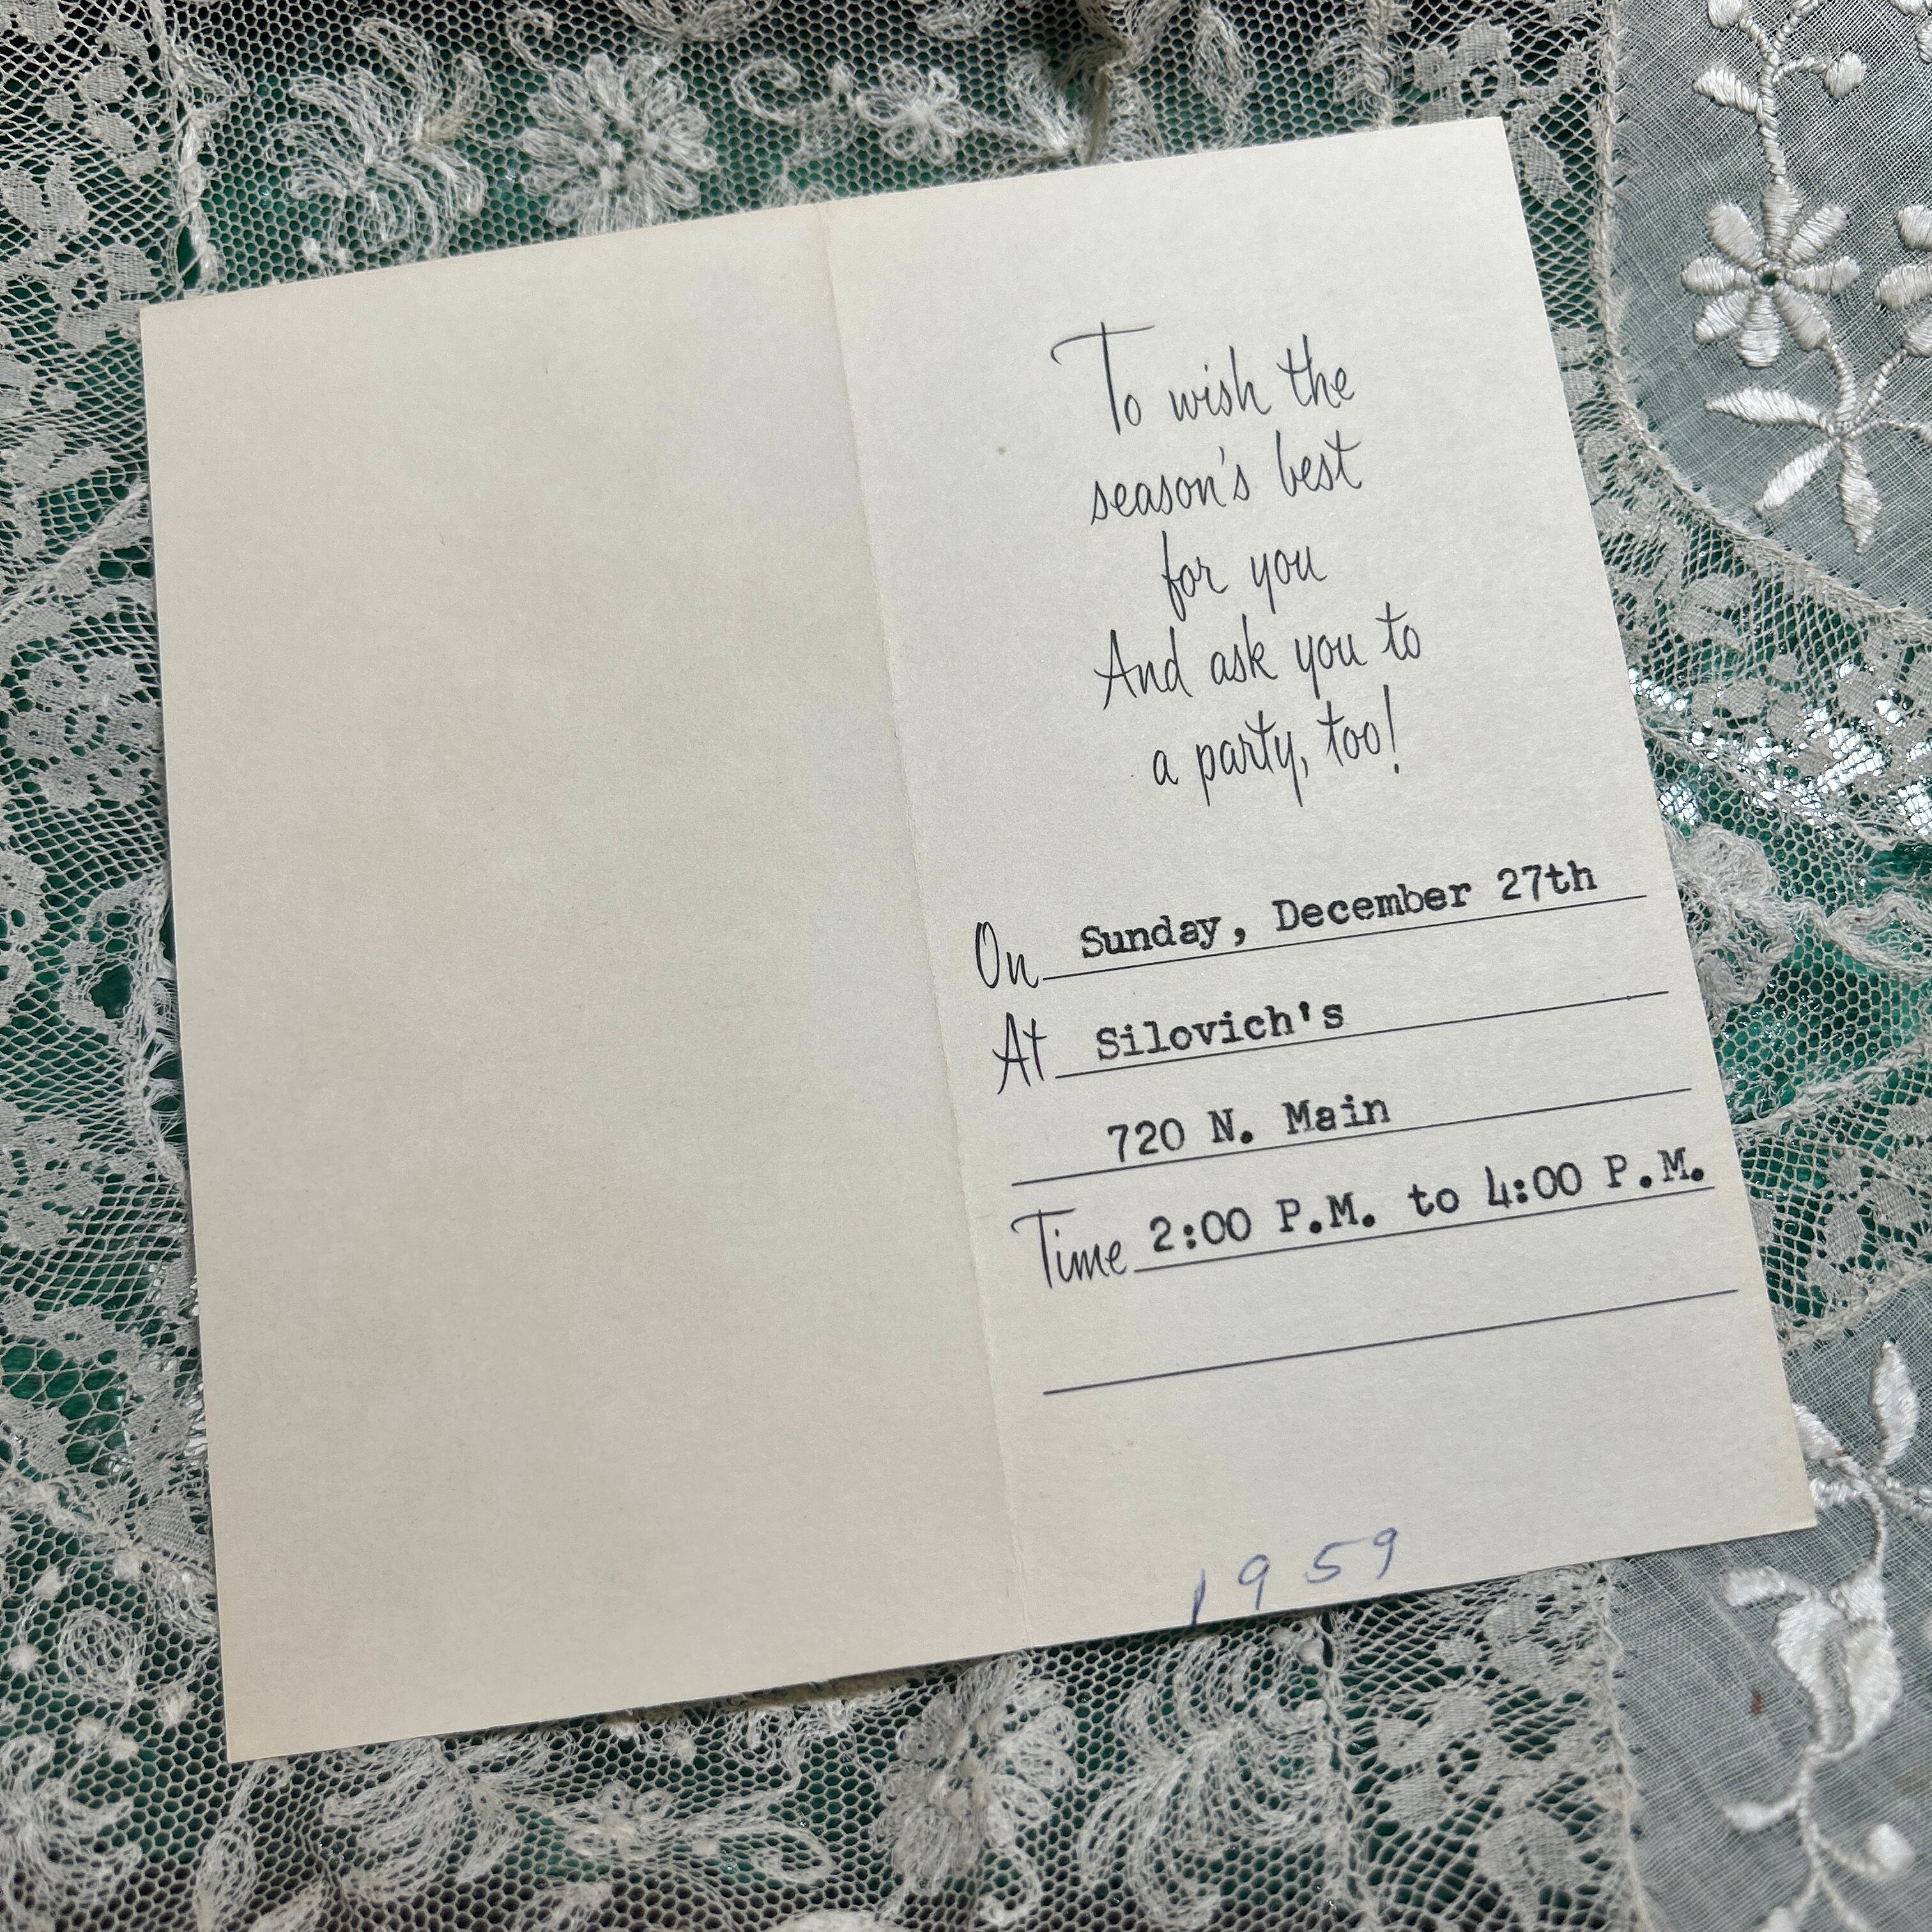 To wish the
season's best
for you
And ask you to
a party, too!
On Sunday, December 27th
At Silovich's
720 N. Main
Time 2:00 P.M. to 4:00 P.M.
1959